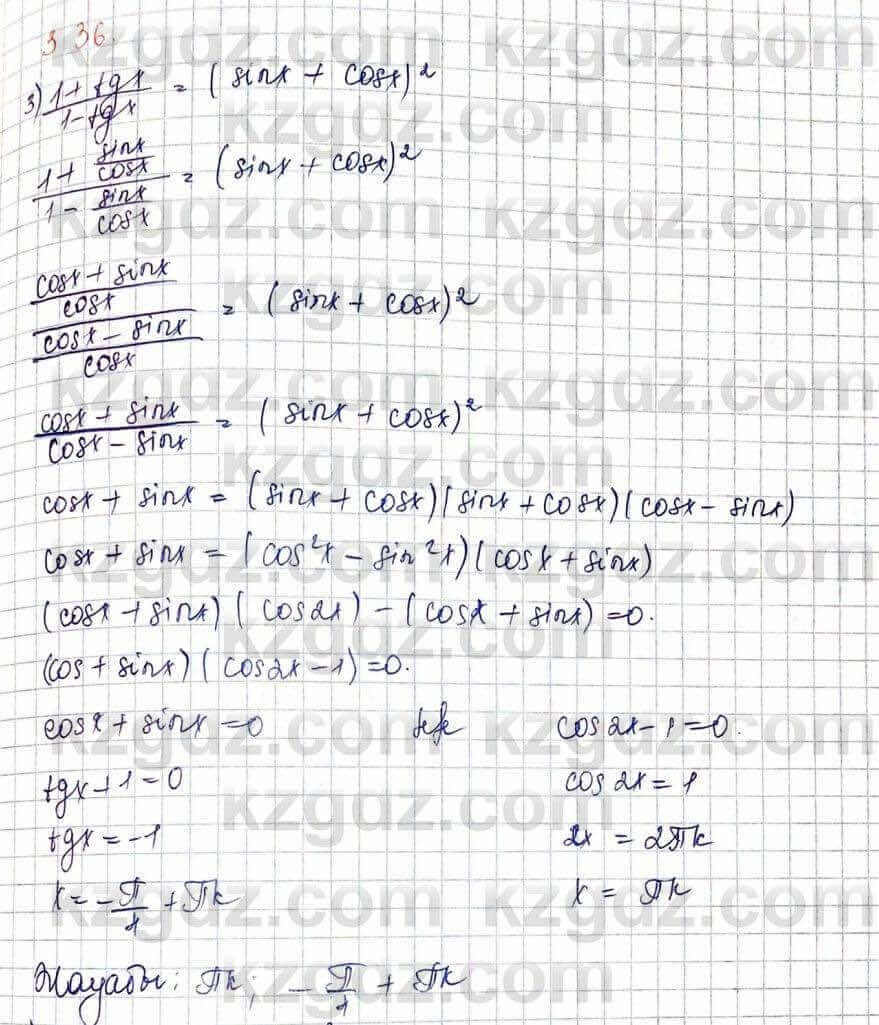 3 36.
3) (1 + tgx)/(1 - tgx) = (sinx + cosx)²
(1 + sinx/cosx)/(1 - sinx/cosx) = (sinx + cosx)²
((cosx + sinx)/cosx)/((cosx - sinx)/cosx) = (sinx + cosx)²
(cosx + sinx)/(cosx - sinx) = (sinx + cosx)²
cosx + sinx = (sinx + cosx)(sinx + cosx)(cosx - sinx)
cosx + sinx = (cos²x - sin²x)(cosx + sinx)
(cosx + sinx)(cos2x) - (cosx + sinx) = 0.
(cos + sinx)(cos2x - 1) = 0.
cosx + sinx = 0 cos2x - 1 = 0.
tgx + 1 = 0 cos2x = 1
tgx = -1 2x = 2πk
x = -π/4 + πk x = πk
Жауабы: πk; -π/4 + πk
kzgdz.com